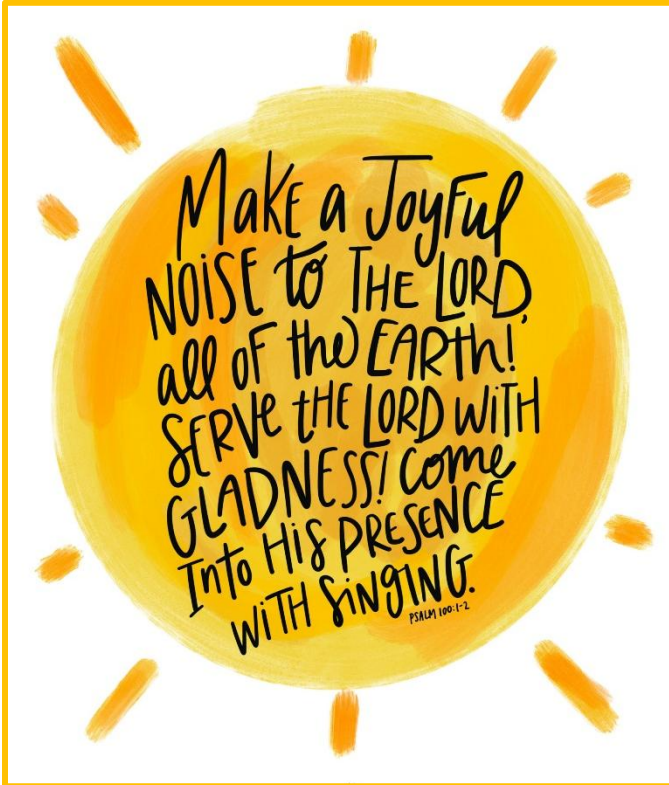 Make a Joyful
NOISE to THE LORD,
all OF the EARth!
SERVE tHE LORD WITH
GLADNESS! Come
Into His PRESENCE
WITH SINGING.
PSALM 100:1-2